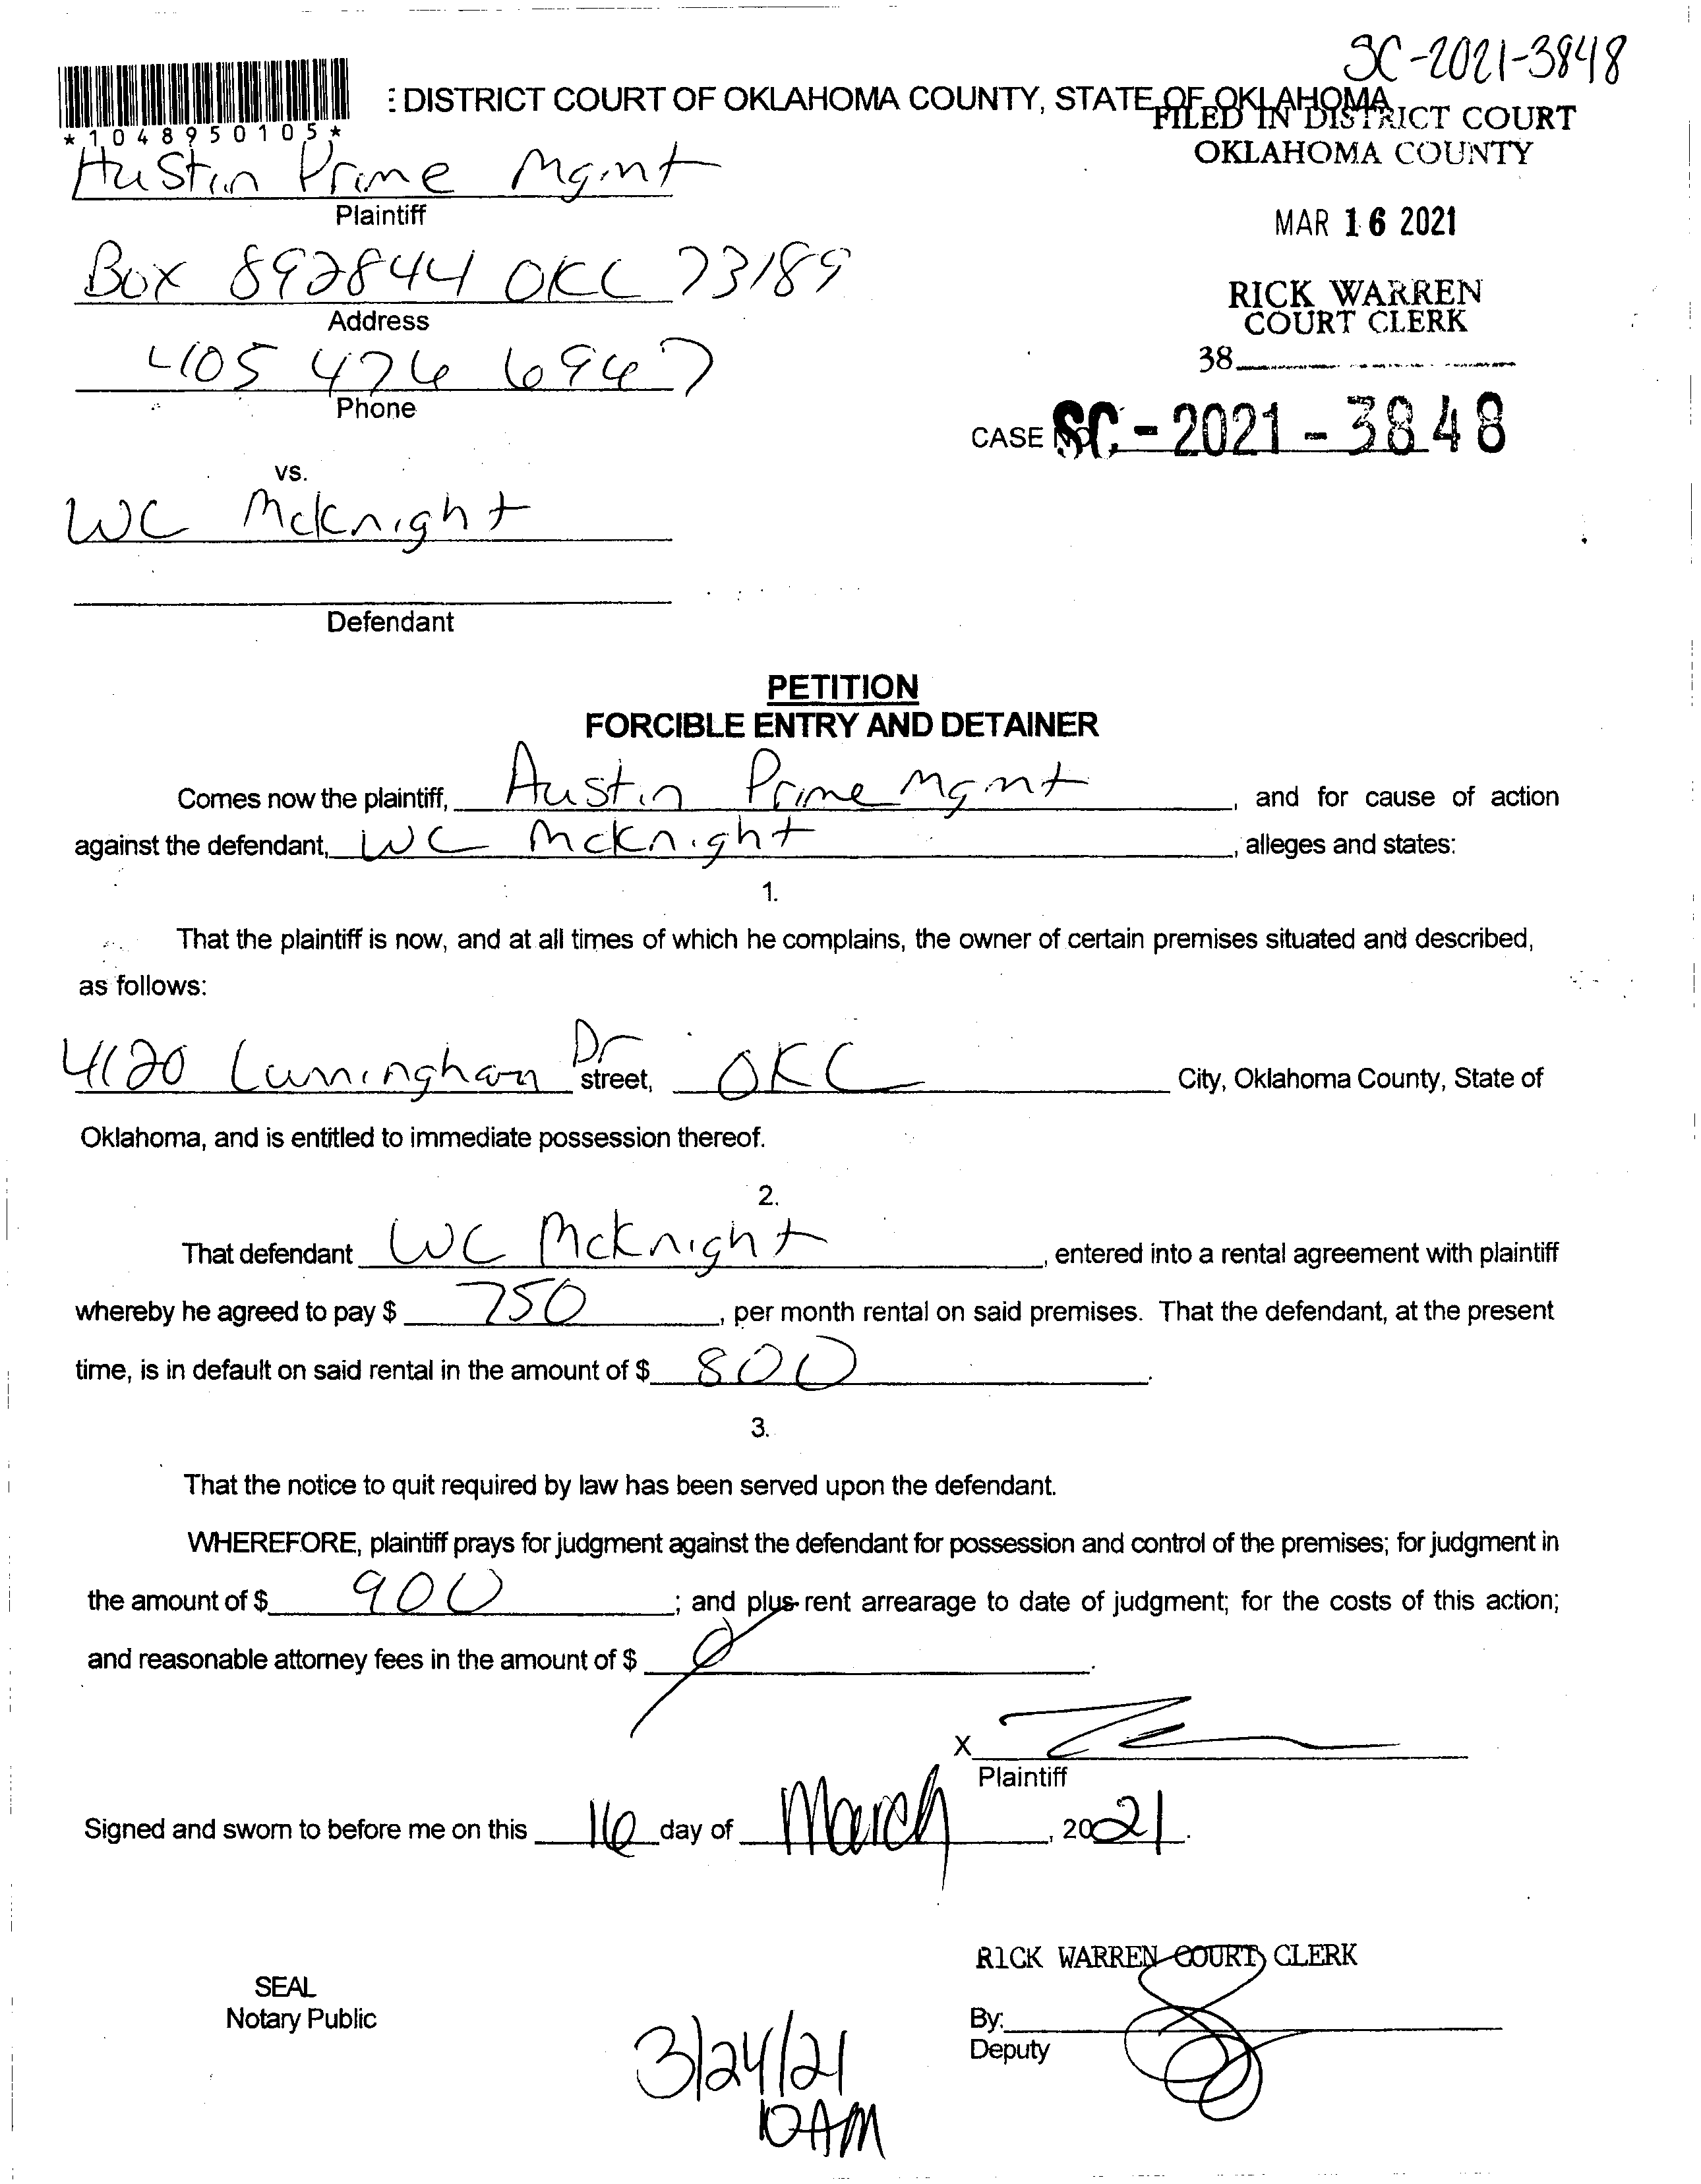 SC-2021-3848
: DISTRICT COURT OF OKLAHOMA COUNTY, STATE OF OKLAHOMA
FILED IN DISTRICT COURT
OKLAHOMA COUNTY
*1048950105*
Austin Prime Mgmt
Plaintiff
MAR 16 2021
Box 892844 OKC 73189
Address
RICK WARREN
COURT CLERK
38
405 476 6967
Phone
CASE NO. SC-2021-3848
vs.
WC McKnight
Defendant
PETITION
FORCIBLE ENTRY AND DETAINER
Comes now the plaintiff, Austin Prime Mgmt, and for cause of action
against the defendant, WC McKnight, alleges and states:
1.
That the plaintiff is now, and at all times of which he complains, the owner of certain premises situated and described,
as follows:
4120 Cunningham Dr street, OKC City, Oklahoma County, State of
Oklahoma, and is entitled to immediate possession thereof.
2.
That defendant WC McKnight, entered into a rental agreement with plaintiff
whereby he agreed to pay $ 750, per month rental on said premises. That the defendant, at the present
time, is in default on said rental in the amount of $ 800.
3.
That the notice to quit required by law has been served upon the defendant.
WHEREFORE, plaintiff prays for judgment against the defendant for possession and control of the premises; for judgment in
the amount of $ 900; and plus rent arrearage to date of judgment; for the costs of this action;
and reasonable attorney fees in the amount of $ 0.
X
Plaintiff
Signed and sworn to before me on this 16 day of March, 2021.
RICK WARREN COURT CLERK
SEAL
Notary Public
By:
Deputy
3/24/21
10AM